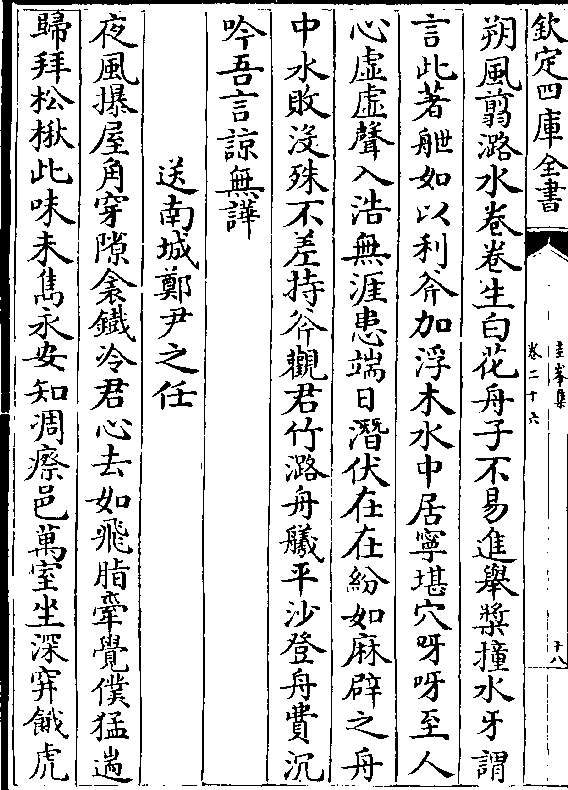 欽定四庫全書
圭峯集
卷二十六
十八
朔風翦潞水卷卷生白花舟子不易進舉槳撞水牙謂
言此著舭如以利斧加浮木水中居寧堪穴呀呀至人
心虛虛聲入浩無涯患端日潛伏在在紛如麻辟之舟
中水敗沒殊不差持斧觀君竹潞舟艤平沙登舟費沉
吟吾言諒無譁
送南城鄭尹之任
夜風㩧屋角穿隙衾鐵冷君心去如飛脂舝覺僕猛遄
歸拜松楸此味未雋永安知凋瘵邑萬室坐深穽餓虎